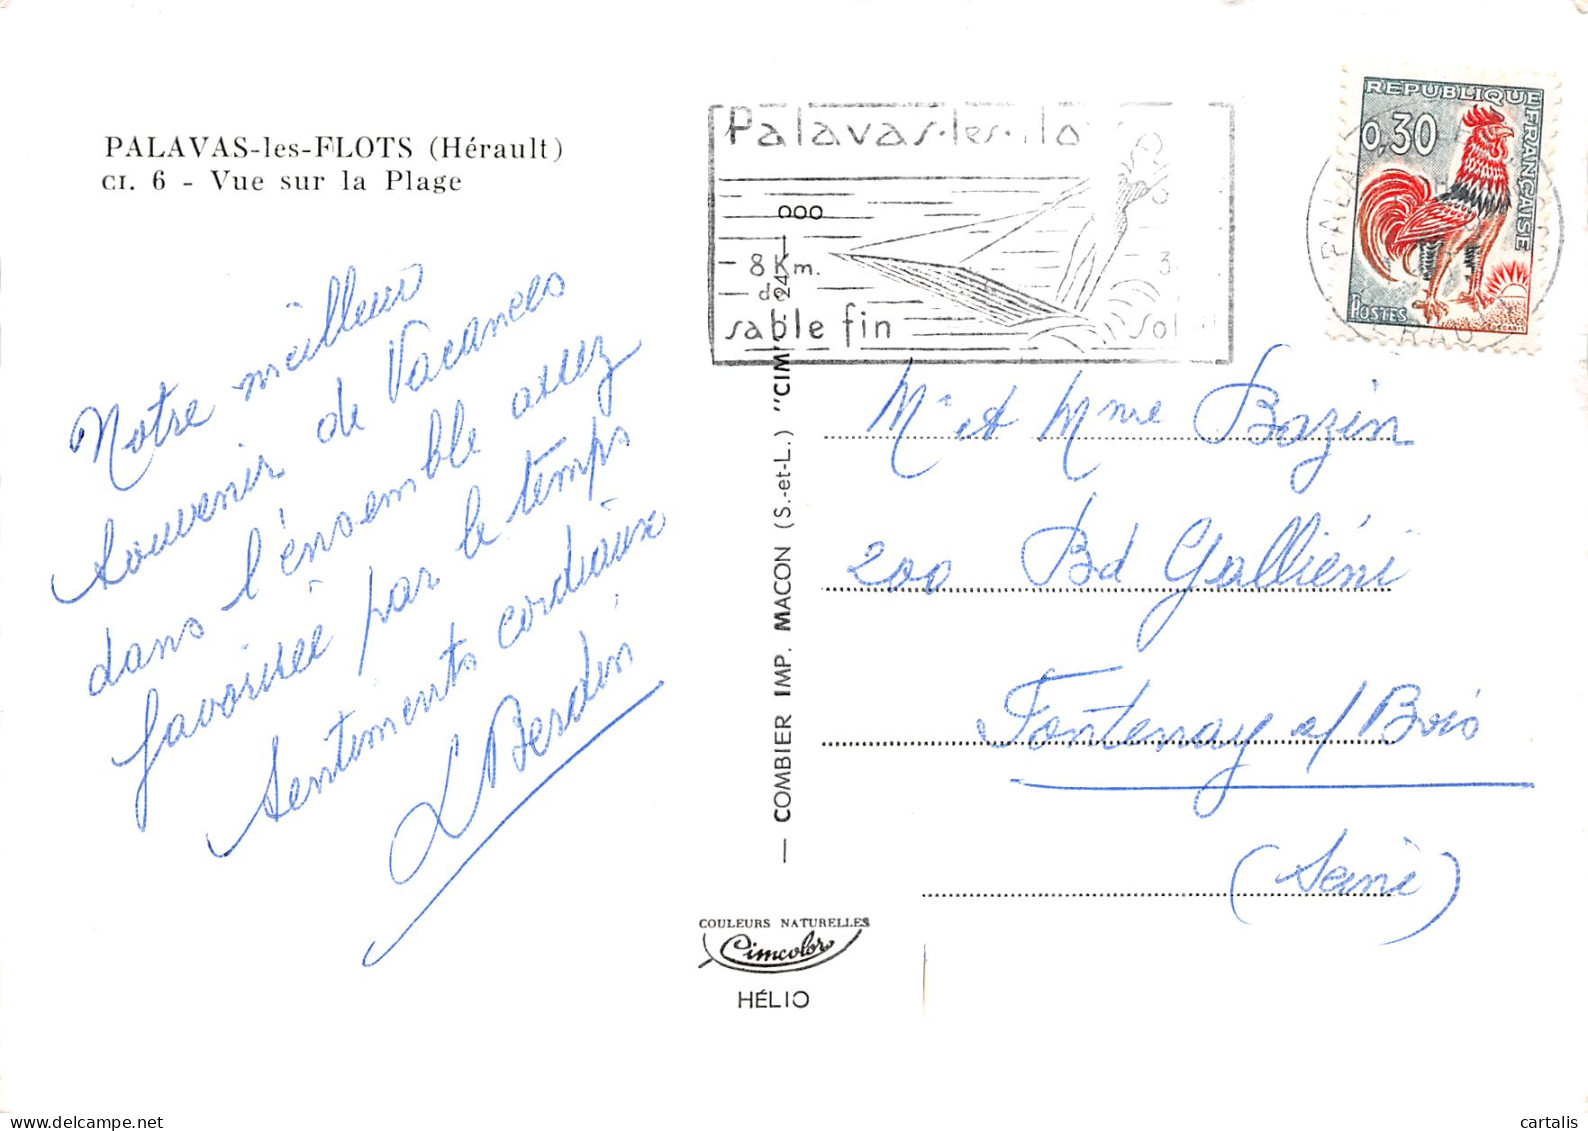 PALAVAS-les-FLOTS (Hérault)
CI. 6 - Vue sur la Plage
Notre meilleur
souvenir de Vacances
dans l'énsemble assez
favorisée par le temps
Sentiments cordiaux
L Berdin
Palavas-les-flo
000
8 Km.
d
sable fin
Sol
RÉPUBLIQUE FRANÇAISE
0,30
POSTES
DECARIS
PALAV
ERAU
Mr et Mme Bazin
200 Bd Galliéni
Fontenay s/ Bois
(Seine)
— COMBIER IMP. MACON (S.-et-L.) "CIM"
COULEURS NATURELLES
Cimcolor
HÉLIO
delcampe.net
cartalis